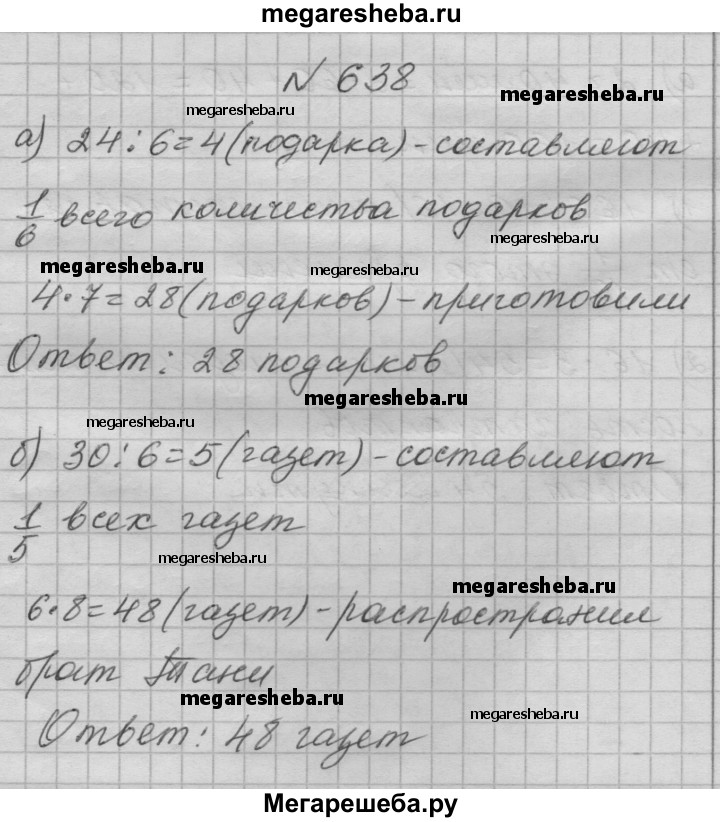 megaresheba.ru
N 638
megaresheba.ru
megaresheba.ru
а) 24:6=4(подарка)-составляют
1/6 всего количества подарков
megaresheba.ru
megaresheba.ru
megaresheba.ru
4·7=28(подарков)-приготовили
Ответ: 28 подарков
megaresheba.ru
megaresheba.ru
б) 30:6=5(газет)-составляют
1/5 всех газет
megaresheba.ru
megaresheba.ru
6·8=48(газет)-распространил
брат Тани
megaresheba.ru
megaresheba.ru
Ответ: 48 газет
Мегарешеба.ру